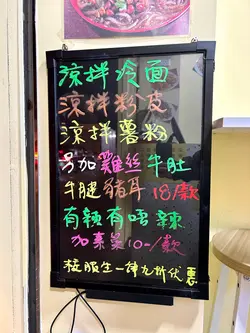 涼拌冷面
涼拌粉皮
涼拌薯粉
另加雞絲牛肚
牛腱豬耳18/款
有辣有唔辣
加素菜10-/款
校服生一律九折优惠